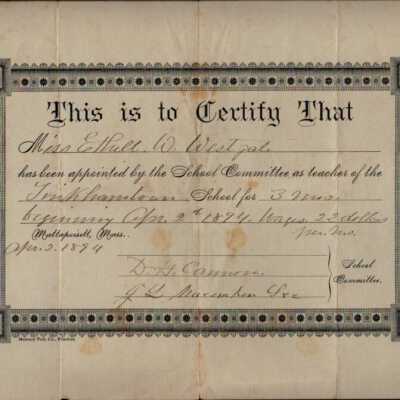 This is to Certify That
Miss Ethell. W. Westgate
has been appointed by the School Committee as teacher of the
Tinkhamtown School for 3 mos.
beginning Apr. 2d 1894. Wages 22 dollars
per. mo.
Mattapoisett, Mass.
Apr. 2. 1894
School
D. H. Cannon
Committee.
J. L. Sec